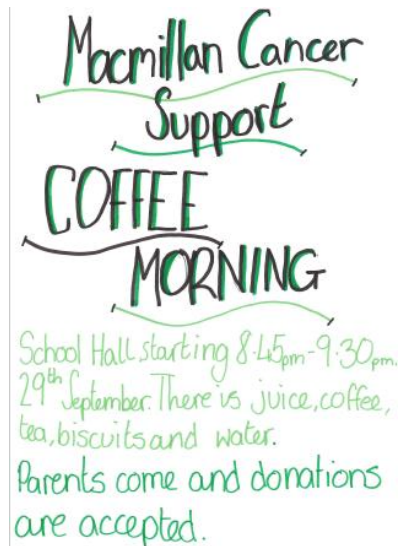 Macmillan Cancer
Support
COFFEE
MORNING
School Hall starting 8.45pm-9.30pm.
29th September. There is juice, coffee,
tea, biscuits and water.
Parents come and donations
are accepted.